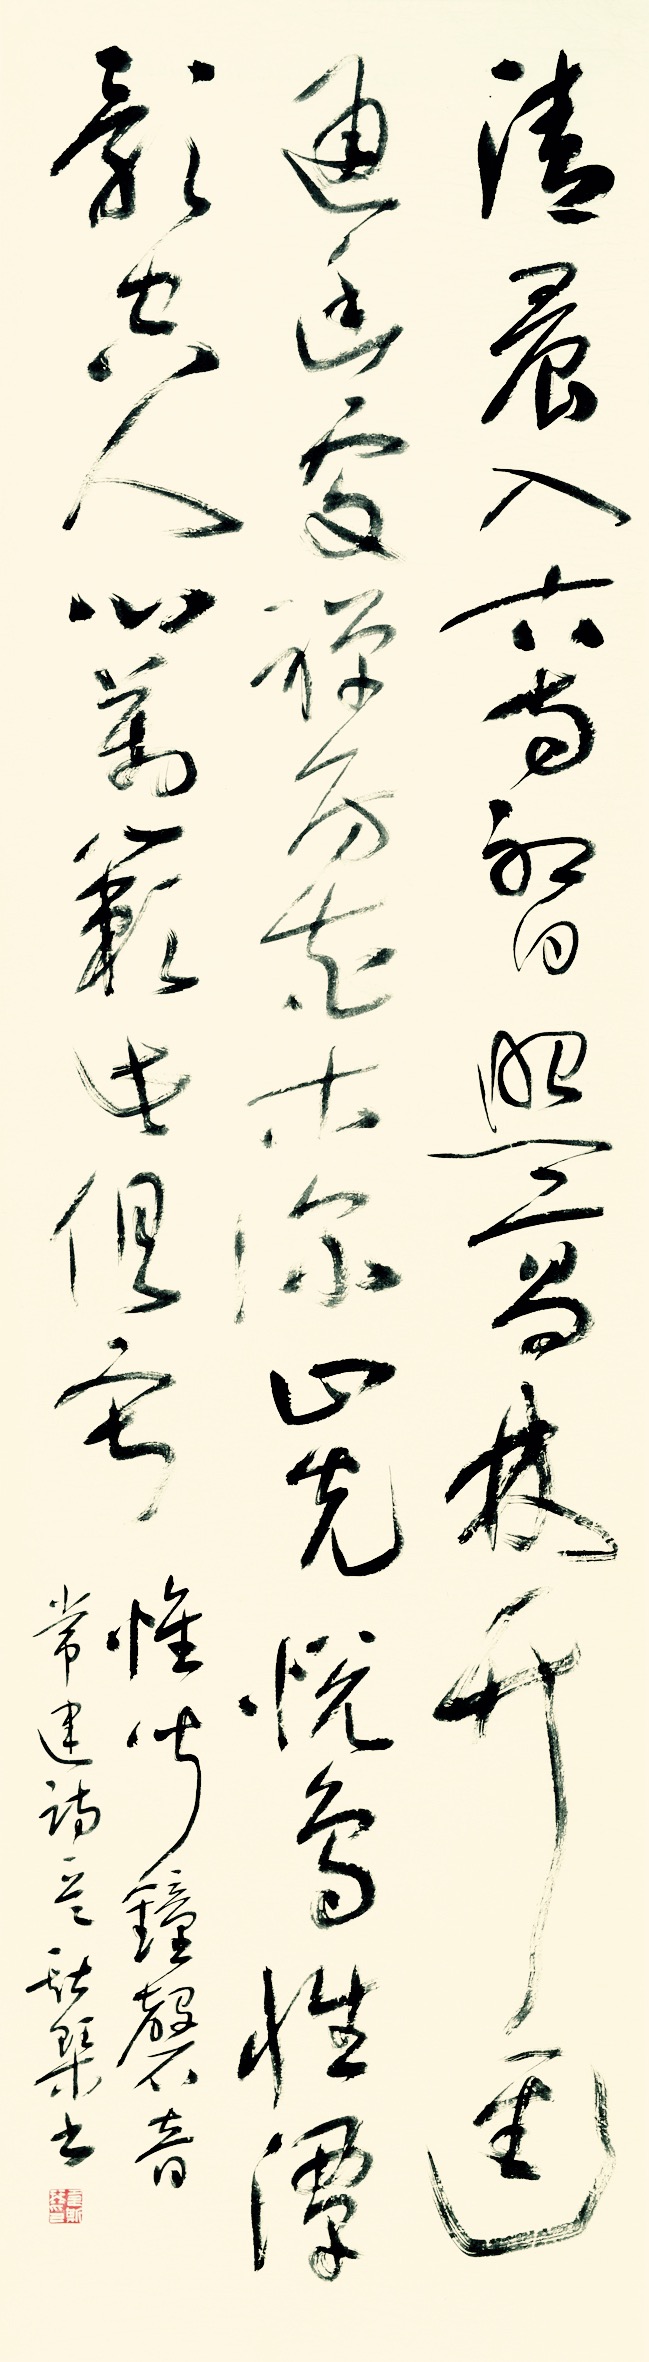 清晨入古寺初日照高林竹逕
通幽處禪房花木深山光悅鳥性潭
影空人心萬籟此俱寂
惟聞鐘磬音
常建詩书